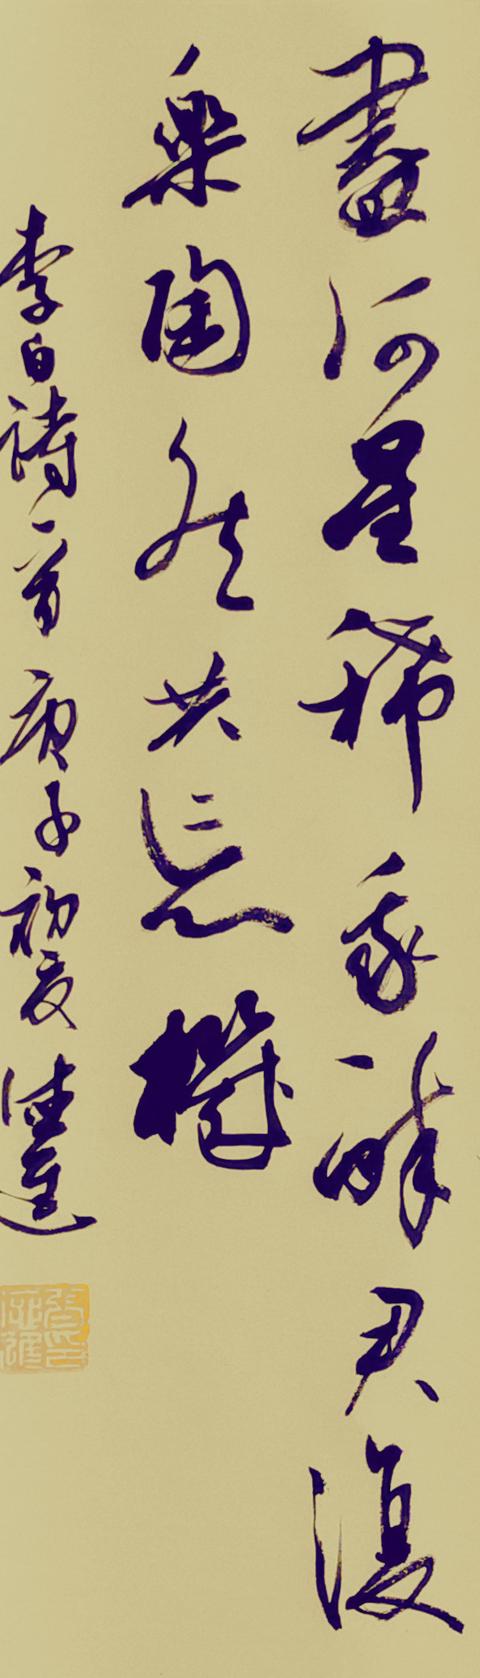 盡河星稀我醉君復
樂陶然共忘機
李白詩一首 庚子初夏